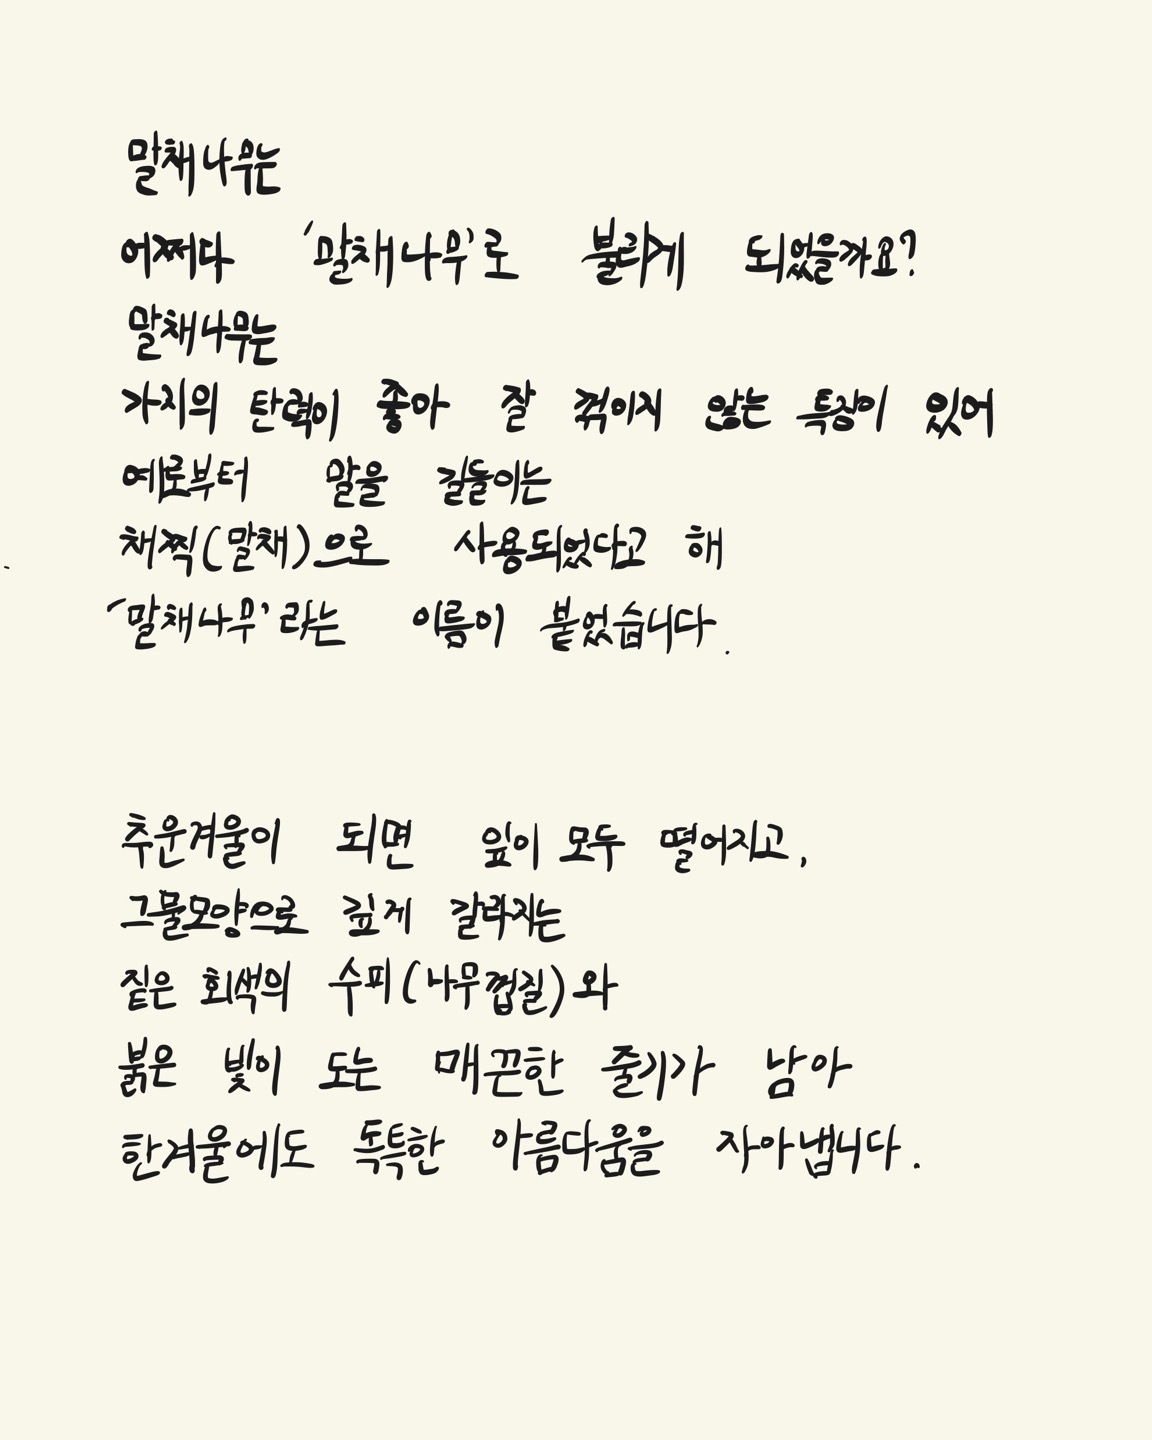 말채나무는
어쩌다 '말채나무'로 불리게 되었을까요?
말채나무는
가지의 탄력이 좋아 잘 꺾이지 않는 특징이 있어
예로부터 말을 길들이는
채찍(말채)으로 사용되었다고 해
'말채나무'라는 이름이 붙었습니다.
추운겨울이 되면 잎이 모두 떨어지고,
그물모양으로 깊게 갈라지는
짙은 회색의 수피(나무껍질)와
붉은 빛이 도는 매끈한 줄기가 남아
한겨울에도 독특한 아름다움을 자아냅니다.